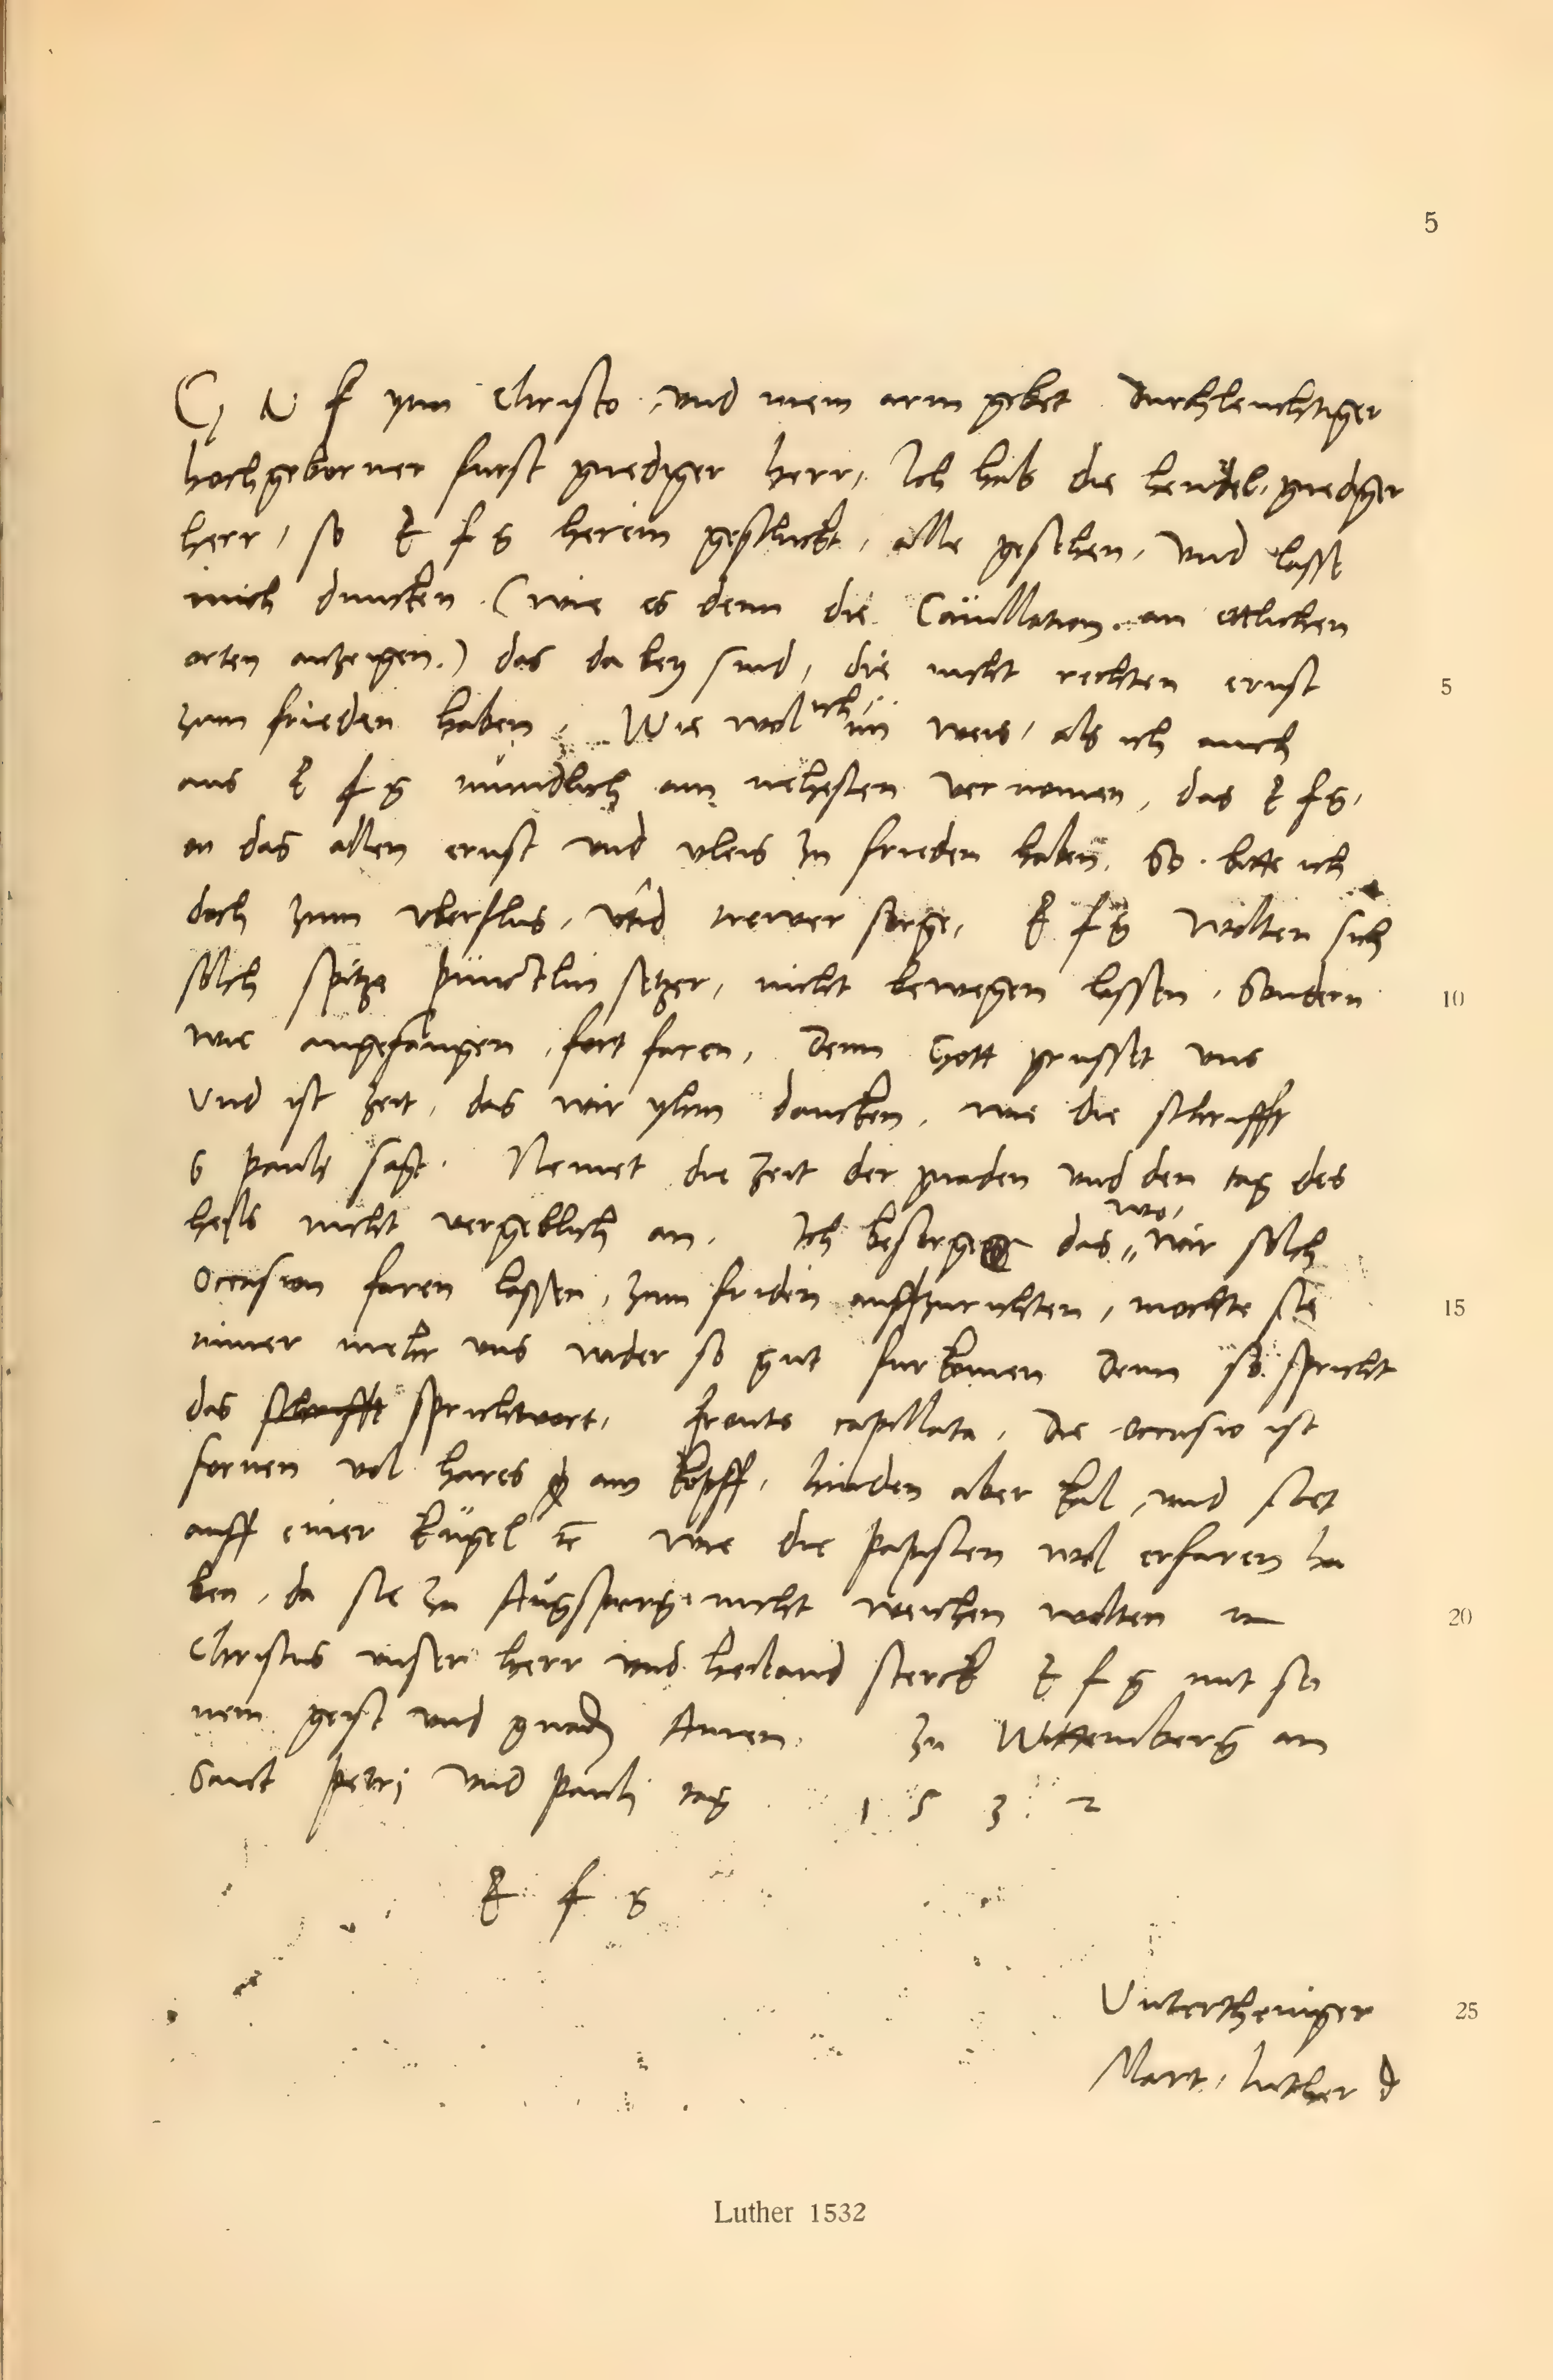 5
G N f ynn Christo, und mein arm gebet Durchleuchtiger
hochgeborner furst gnediger herr, Ich hab die hendel, gnediger
herr, so E f g herein geschickt, alle gesehen, und lasse
mich duncken (wie es denn die Cauillation an ettlichen
orten anzeigen) das da bey sind, die nicht rechten ernst
5
zum frieden haben, Wie wol ich nu weis, als ich auch
aus E f g mundlich am nehesten vernomen, das E f g,
on das allen ernst und vleis zu frieden haben, So bitte ich
doch zum vberflus, und trewer sorge, E f g wolten sich
solch spitze pünctlin setzer, nicht bewegen lassen, Sondern
10
wie angefangen, fort faren, Denn Gott grusset uns
Und ist zeit, das wir yhm dancken, wie die schrifft
S Pauli sagt. Nemet die zeit der gnaden und den tag des
heils nicht vergeblich an. Ich besorge das wo, wir solch
Occasion faren lassen, zum friden auffzurichten, mochte sie
15
nimer mehr uns wider so gut furkomen Denn so spricht
das schrifft sprichtwort, fronte capillata, Die Occasio ist
fornen vol hares am kopff, hinden aber kal, und stet
auff einer kugel rc wie die Papisten wol erfaren ha
ben, da sie zu Augspurg nicht weichen wolten rc
20
Christus unser herr und heiland sterck E f g mit sei
nem geist und gnaden Amen. Zu Wittemberg am
Sanct Petri und Pauli tag 1 5 3 2
E f g
Untertheniger
25
Mart. Luther D
Luther 1532